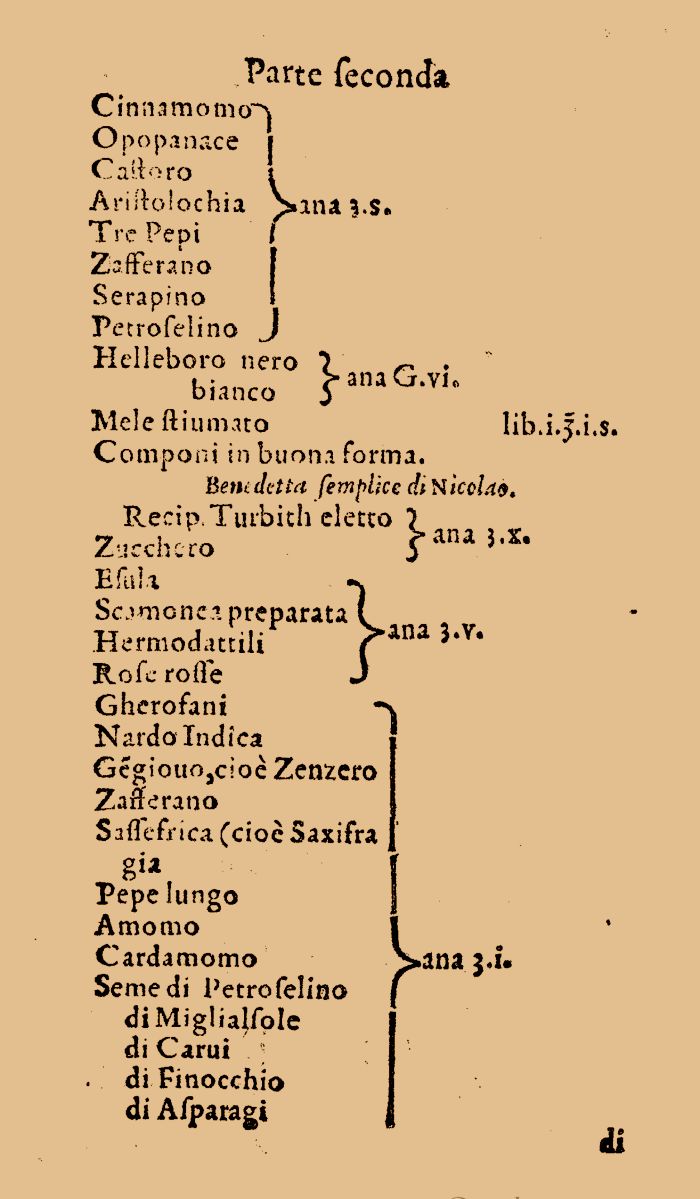 Parte ſeconda
Cinnamomo
Opopanace
Caſtoro
Ariſtolochia
ana ʒ.s.
Tre Pepi
Zafferano
Serapino
Petroſelino
Helleboro nero
bianco
ana G.vi.
Mele ſtiumato lib.i.℥.i.s.
Componi in buona forma.
Benedetta ſemplice di Nicolao.
Recip. Turbith eletto
Zucchero
ana ʒ.x.
Eſula
Scamonea preparata
Hermodattili
ana ʒ.v.
Roſe roſſe
Gherofani
Nardo Indica
Gēgiouo, cioè Zenzero
Zafferano
Saſſefrica (cioè Saxifra
gia
Pepe lungo
Amomo
Cardamomo
ana ʒ.i.
Seme di Petroſelino
di Miglialſole
di Carui
di Finocchio
di Aſparagi
di